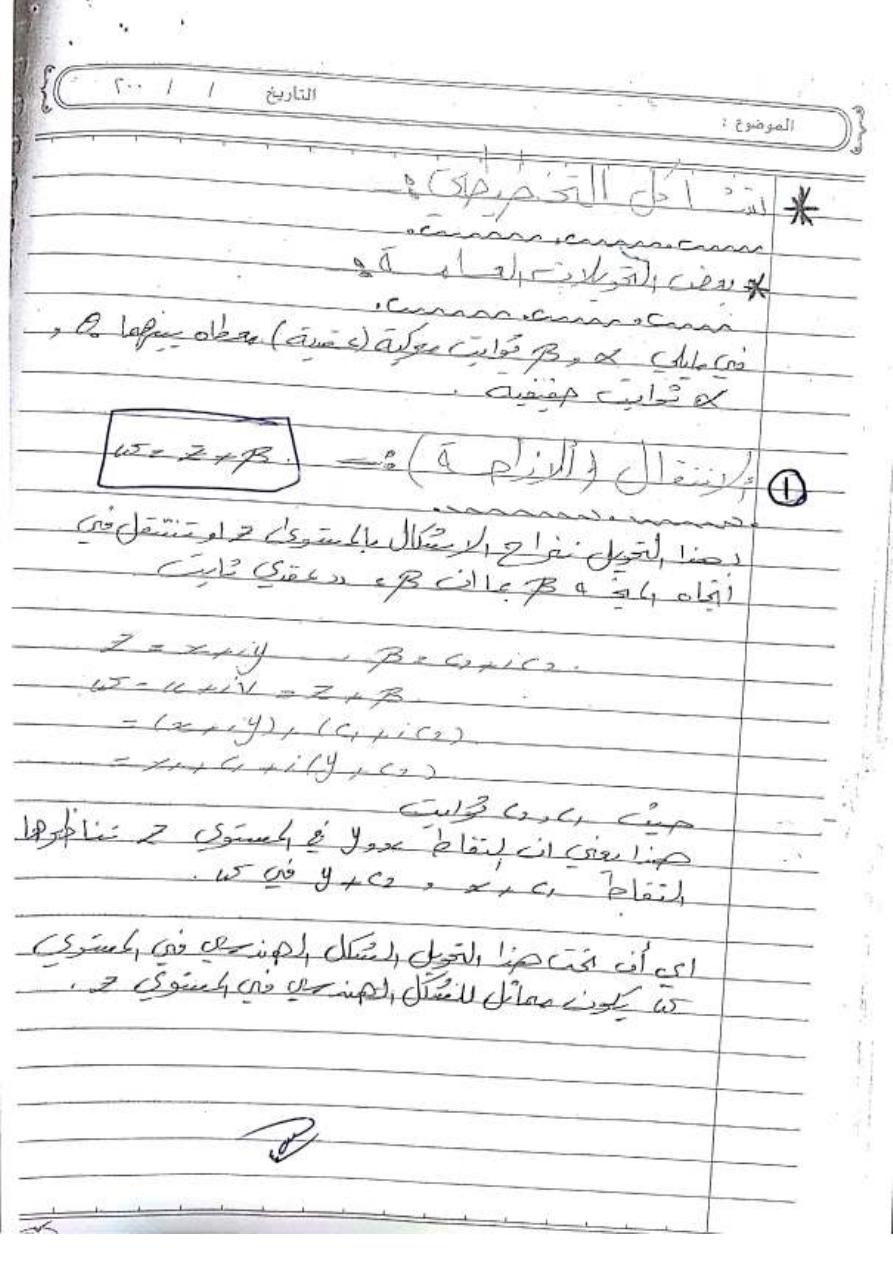 التاريخ / / ٢٠٠
الموضوع :
* التحويلات العامة :
* بعض التحويلات العامة :
في مايلي α و β ثوابت مركبة (عقدية) معطاه بينهما θ₀ و
α ثوابت حقيقيه .
① الانتقال (الازاحة) :- w = z + β .
بهذا التحويل تنزاح الاشكال بالمستوى z او تنتقل في
أتجاه المتجه β بما ان β عدد عقدي ثابت
z = x + iy , β = c₁ + ic₂ .
w = u + iv = z + β .
= (x + iy) + (c₁ + ic₂)
= x + c₁ + i(y + c₂)
حيث c₁ , c₂ ثوابت
هذا يعني ان النقاط x و y في المستوي z تناظرها
النقاط x + c₁ , y + c₂ في w .
اي أن تحت هذا التحويل الشكل الهندسي في المستوي
w يكون مماثل للشكل الهندسي في المستوي z .